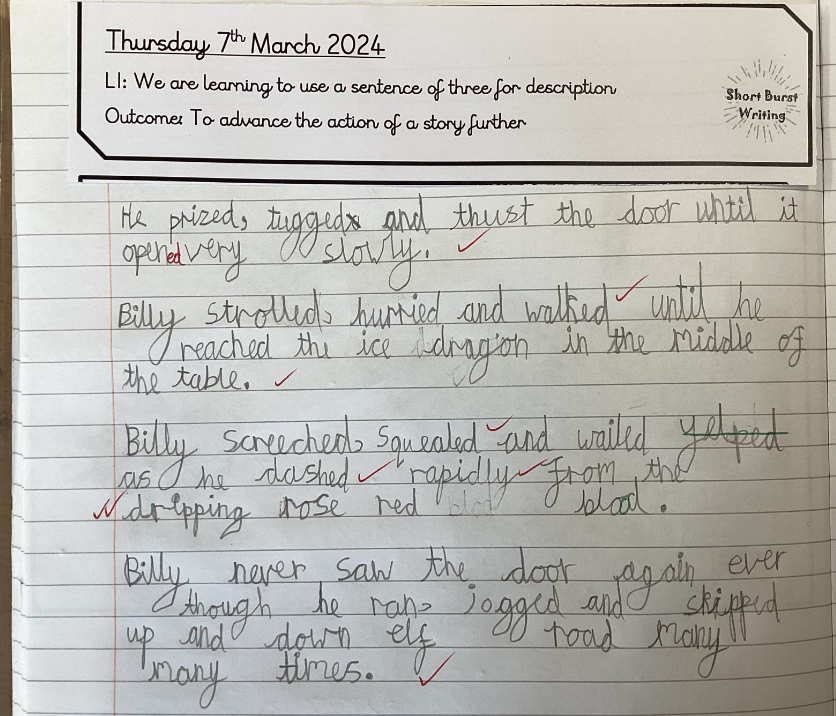 Thursday 7th March 2024
LI: We are learning to use a sentence of three for description
Outcome: To advance the action of a story further
Short Burst
Writing
He prized, tugged and thust the door until it
opened very slowly.
Billy strolled, hurried and walked until he
reached the ice dragon in the middle of
the table.
Billy screeched, squealed and wailed yelped
as he dashed rapidly from the
dripping rose red blood.
Billy never saw the door again ever
though he ran, jogged and skipped
up and down elf road many
many times.